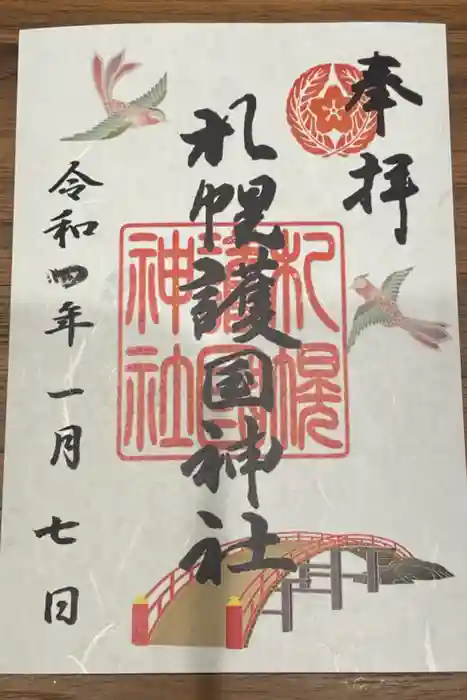 奉拝
札幌護國神社
札幌
護國
神社
令和四年一月七日